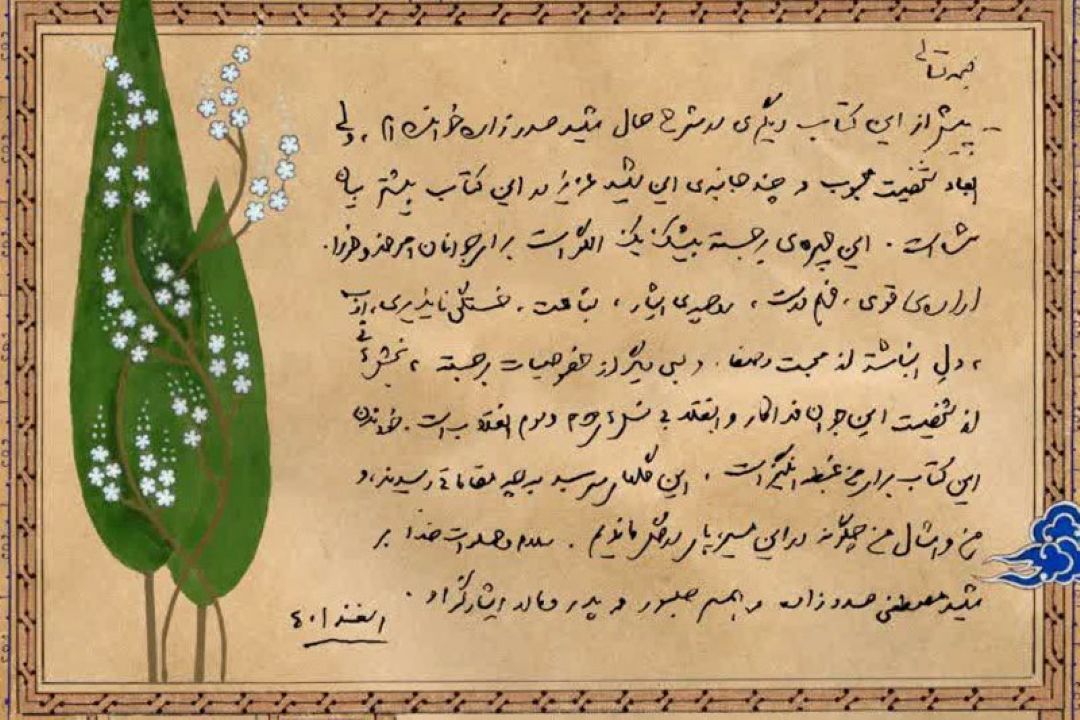 بسمه تعالی
- پیش از این کتاب دیگری در شرح حال شهید صدرزاده خوانده‌ام، ولی
ابعاد شخصیت محبوب و چند جانبه‌ی این شهید عزیز در این کتاب بیشتر بیان
شده است. این چهره‌ی برجسته بیشک یک الگو است برای جوانان امروز و فردا.
اراده‌ی قوی، فهم درست، روحیه‌ی ایثار، شجاعت، خستگی‌ناپذیری، ادب
، دلِ انباشته از محبت و صفا. و بسی دیگر از خصوصیات برجسته، بخشی
از شخصیت این جوان فداکار و انقلابی نسل سوم انقلاب است. خواندن
این کتاب برای من غبطه‌انگیز است. این گلهای سرسبد به چه مقاماتی رسیدند، و
من و امثال من چگونه در این مسیر پای در گل مانده‌ایم. سلام و صلوات خدا بر
شهید مصطفی صدرزاده و همسر صبور و پدر و مادر ایثارگر او.
اسفند ۴۰۱